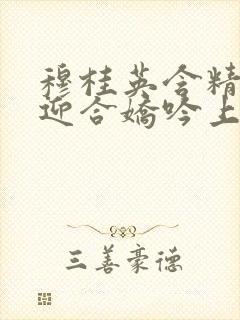 穆桂英含精
迎合娇吟上
三善豪德